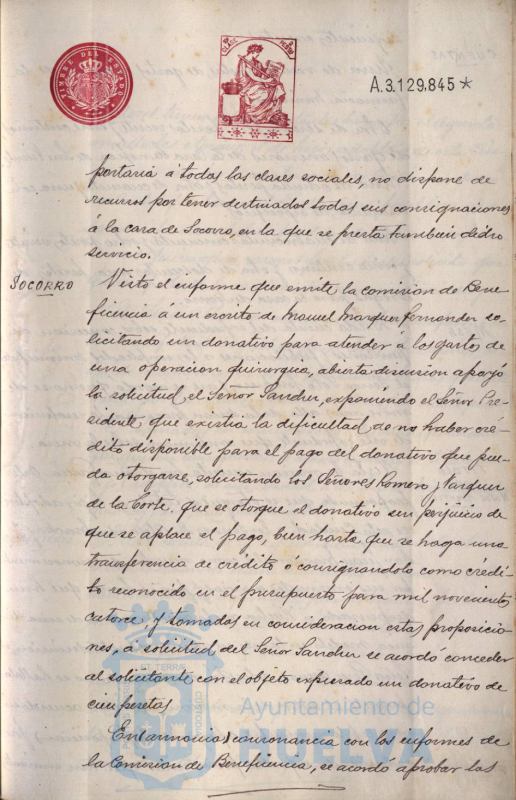 TIMBRE DEL ESTADO
A.3.129.845*
portaria á todas las clases sociales, no dispone de
recursos por tener destinados todas sus consignaciones
á la casa de Socorro, en la que se presta tambien dicho
servicio.
SOCORRO
Visto el informe que emite la comision de Bene
ficencia á un escrito de Manuel Marquez Fernandez so-
licitando un donativo para atender á los gastos de
una operacion quirurgica, abierta discusion apoyó
la solicitud el Señor Sandru, exponiendo el Señor Pre-
sidente que existia la dificultad de no haber cre-
dito disponible para el pago del donativo que pue-
da otorgarse, solicitando los Señores Romero y Vazquez
de la Corte, que se otorgue el donativo sin perjuicio de
que se aplace el pago, bien hasta que se haga una
transferencia de crédito ó consignandolo como crédi-
to reconocido en el presupuesto para mil novecientos
catorce, y tomadas en consideracion estas proposicio-
nes, á solicitud del Señor Sandru se acordó conceder
al solicitante con el objeto expresado un donativo de
cien pesetas
Ayuntamiento de
HUELVA
En armonia y consonancia con los informes de
la Comision de Beneficencia, se acordó aprobar las